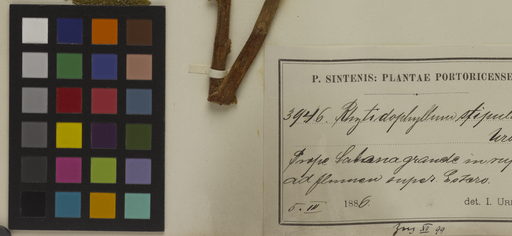 P. SINTENIS: PLANTAE PORTORICENSE
3946. Rhytidophyllum stipul
Urb
Prope Sabana grande in rup
ad flumen super. Estero.
5. III 1886. det. I. Ur